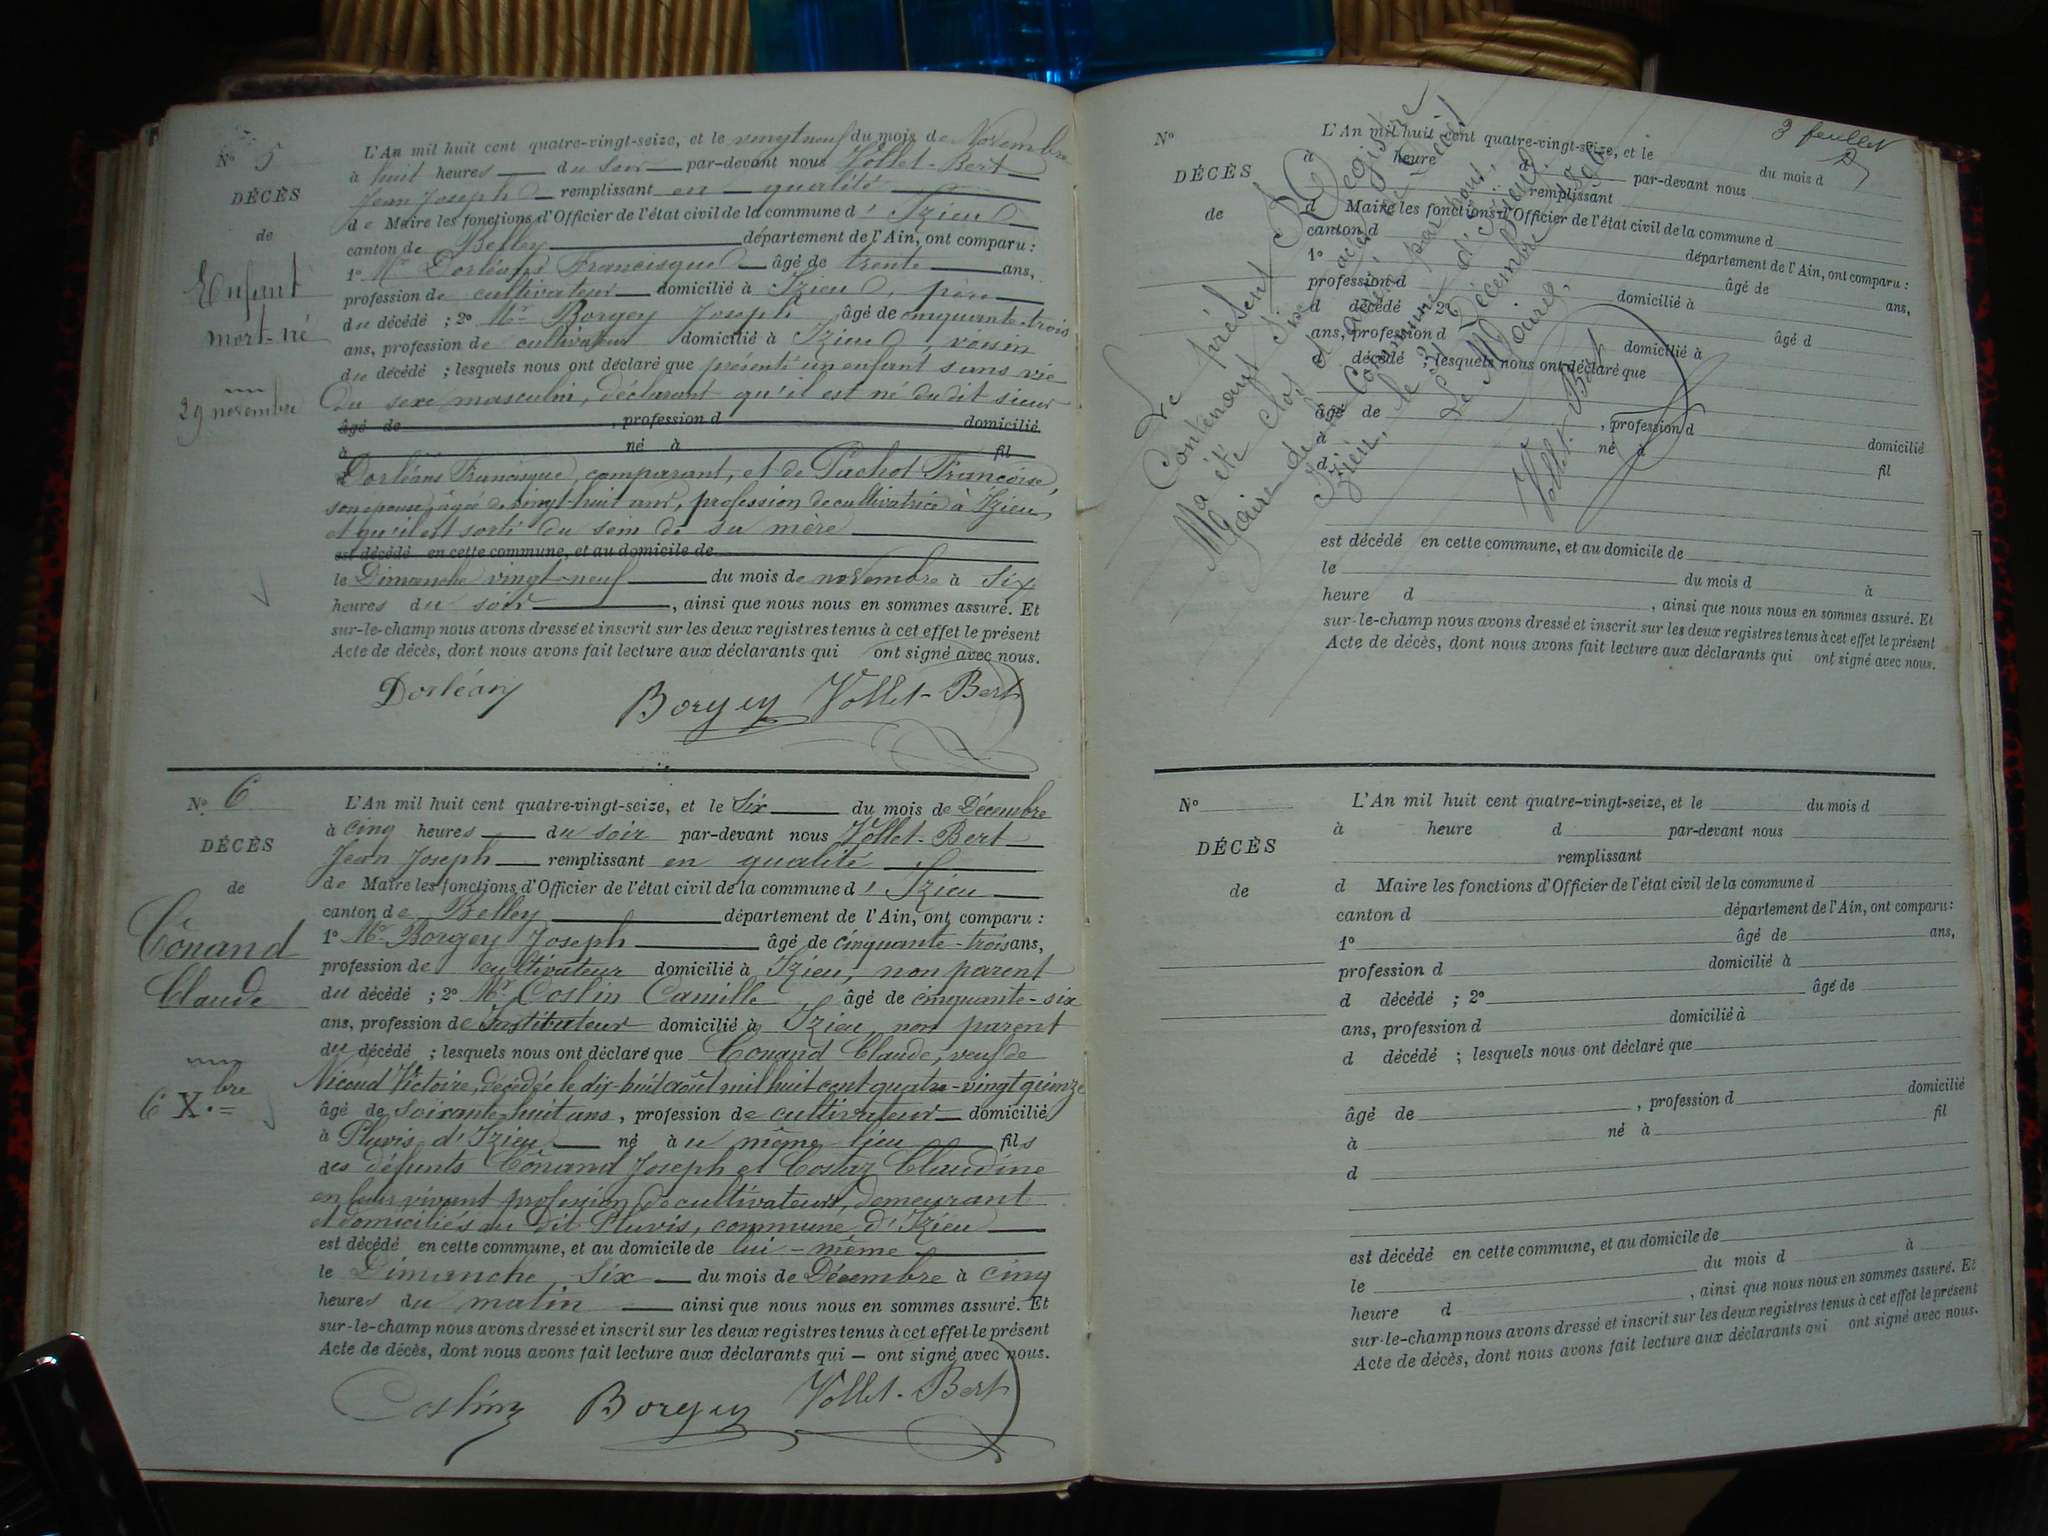 Nº 5
DÉCÈS
de
Enfant
mort-né
29 novembre
L'An mil huit cent quatre-vingt-seize, et le vingt neuf du mois de Novembre
à huit heures du soir par-devant nous Vollet-Bert
Jean Joseph remplissant en qualité
de Maire les fonctions d'Officier de l'état civil de la commune d'Izieu
canton de Belley département de l'Ain, ont comparu :
1º Mr Dorléans Francisque âgé de trente ans,
profession de cultivateur domicilié à Izieu, père
du décédé ; 2º Mr Borgey Joseph âgé de cinquante-trois
ans, profession de cultivateur domicilié à Izieu, voisin
du décédé ; lesquels nous ont déclaré que présenté un enfant sans vie
du sexe masculin, déclarant qu'il est né du dit sieur
âgé de , profession d domicilié
à né à fil
Dorléans Francisque, comparant, et de Pachot Françoise,
son épouse, âgée de vingt-huit ans, profession de cultivatrice à Izieu,
et qu'il est sorti du sein de sa mère
est décédé en cette commune, et au domicile de
le Dimanche vingt-neuf du mois de novembre à six
heures du soir , ainsi que nous nous en sommes assuré. Et
sur-le-champ nous avons dressé et inscrit sur les deux registres tenus à cet effet le présent
Acte de décès, dont nous avons fait lecture aux déclarants qui ont signé avec nous.
Dorléans Borgey Vollet-Bert
Nº 6
DÉCÈS
de
Conand
Claude
6 X.bre
L'An mil huit cent quatre-vingt-seize, et le Six du mois de Décembre
à cinq heures du soir par-devant nous Vollet-Bert
Jean Joseph remplissant en qualité
de Maire les fonctions d'Officier de l'état civil de la commune d'Izieu
canton de Belley département de l'Ain, ont comparu :
1º Mr Borgey Joseph âgé de cinquante-trois ans,
profession de cultivateur domicilié à Izieu, non parent
du décédé ; 2º Mr Coslin Camille, âgé de cinquante-six
ans, profession de Instituteur domicilié à Izieu, non parent
du décédé ; lesquels nous ont déclaré que Conand Claude, veuf de
Nicoud Victoire, décédée le dix-huit août mil huit cent quatre-vingt quinze
âgé de soixante-huit ans, profession de cultivateur domicilié
à Pluvis d'Izieu né au même lieu fils
des défunts Conand Joseph et Costaz Claudine
en leur vivant profession de cultivateurs, demeurant
et domiciliés au dit Pluvis, commune d'Izieu
est décédé en cette commune, et au domicile de lui-même
le Dimanche, six du mois de Décembre à cinq
heures du matin ainsi que nous nous en sommes assuré. Et
sur-le-champ nous avons dressé et inscrit sur les deux registres tenus à cet effet le présent
Acte de décès, dont nous avons fait lecture aux déclarants qui — ont signé avec nous.
Coslin Borgey Vollet-Bert
3 feuillet
Nº
DÉCÈS
de
L'An mil huit cent quatre-vingt-seize, et le du mois d
à heure d par-devant nous
remplissant
d Maire les fonctions d'Officier de l'état civil de la commune d
canton d département de l'Ain, ont comparu :
1º âgé de ans,
profession d domicilié à
d décédé ; 2º âgé d
ans, profession d domicilié à
d décédé ; lesquels nous ont déclaré que
âgé de , profession d domicilié
à né à fil
d
est décédé en cette commune, et au domicile de
le du mois d à
heure d , ainsi que nous nous en sommes assuré. Et
sur-le-champ nous avons dressé et inscrit sur les deux registres tenus à cet effet le présent
Acte de décès, dont nous avons fait lecture aux déclarants qui ont signé avec nous.
Le présent Registre
Contenant six actes de décès
a été clos et arrêté par nous,
Maire de la Commune d'Izieu.
Izieu, le 31 Décembre 1896
Le Maire,
Vollet-Bert
Nº
DÉCÈS
de
L'An mil huit cent quatre-vingt-seize, et le du mois d
à heure d par-devant nous
remplissant
d Maire les fonctions d'Officier de l'état civil de la commune d
canton d département de l'Ain, ont comparu :
1º âgé de ans,
profession d domicilié à
d décédé ; 2º âgé de
ans, profession d domicilié à
d décédé ; lesquels nous ont déclaré que
âgé de , profession d domicilié
à né à fil
d
est décédé en cette commune, et au domicile de
le du mois d à
heure d , ainsi que nous nous en sommes assuré. Et
sur-le-champ nous avons dressé et inscrit sur les deux registres tenus à cet effet le présent
Acte de décès, dont nous avons fait lecture aux déclarants qui ont signé avec nous.